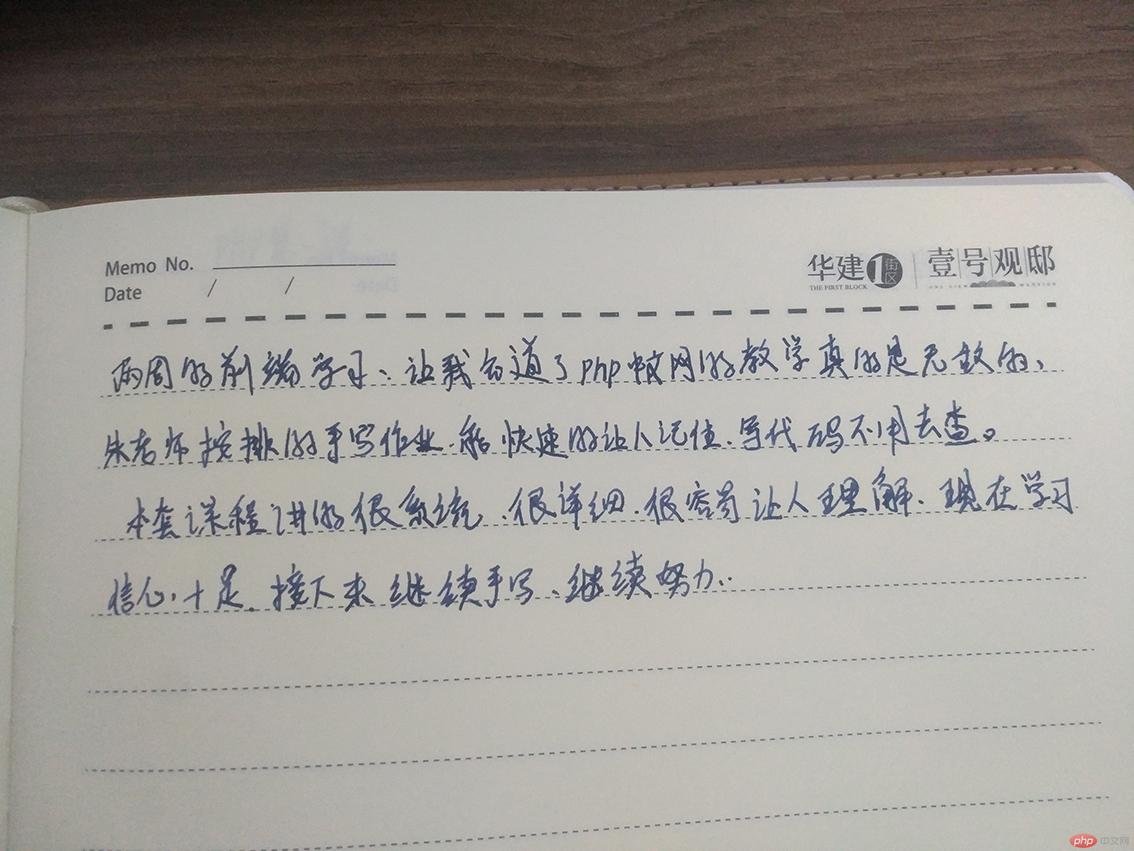 Memo No.
Date / /
华建1街区 壹号观邸
THE FIRST BLOCK
两周的前端学习、让我知道了php中文网的教学真的是无敌的、
朱老师按排的手写作业.能快速的让人记住.写代码不用去查。
本套课程讲的很系统、很详细.很容易让人理解.现在学习
信心十足.接下来继续手写、继续努力..
php中文网